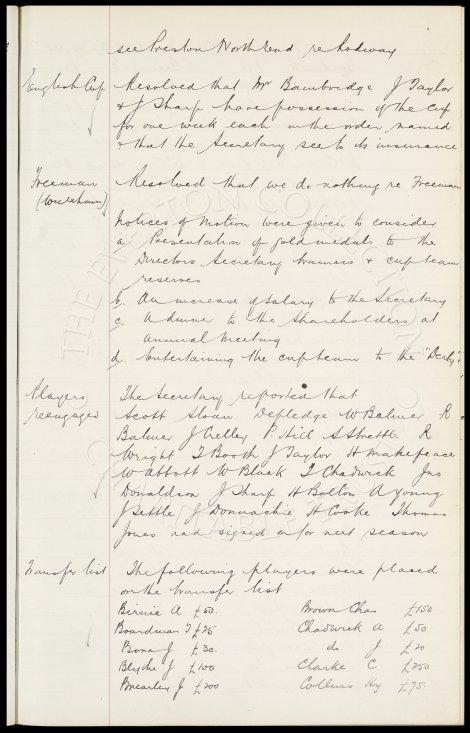 see Preston North End re Rodway
English Cup
Resolved that Mr Bainbridge J Taylor
& J Sharp have possession of the Cup
for one week each in the order named
& that the Secretary see to its insurance
Freeman
(Woolwich)
Resolved that we do nothing re Freeman
Notices of Motion were given to consider
a Presentation of gold medals to the
Directors Secretary trainers & cup team
reserves
b. An increase of salary to the Secretary
c. A dinner to the Shareholders at
annual meeting
d. Entertaining the cup team to the "Derby"
Players
reengaged
The Secretary reported that
Scott Sloan Depledge W Balmer R
Balmer J Crelley P. Hill S Strettle R
Wright T Booth J Taylor H Makepeace
W Abbott W Black T Chadwick Jno
Donaldson J Sharp H Bolton A Young
J Settle J Donnachie H Cooke Thomas
Jones had signed on for next season
Transfer list
The following players were placed
on the transfer list
Birnie A £50.
Brown Chas £150
Boardman T £25
Chadwick A £50
Bone J £30.
do J £20
Blythe J £100
Clarke C £250
Brearley J £200
Collins Hy £75.
THE EVERTON COLLECTION